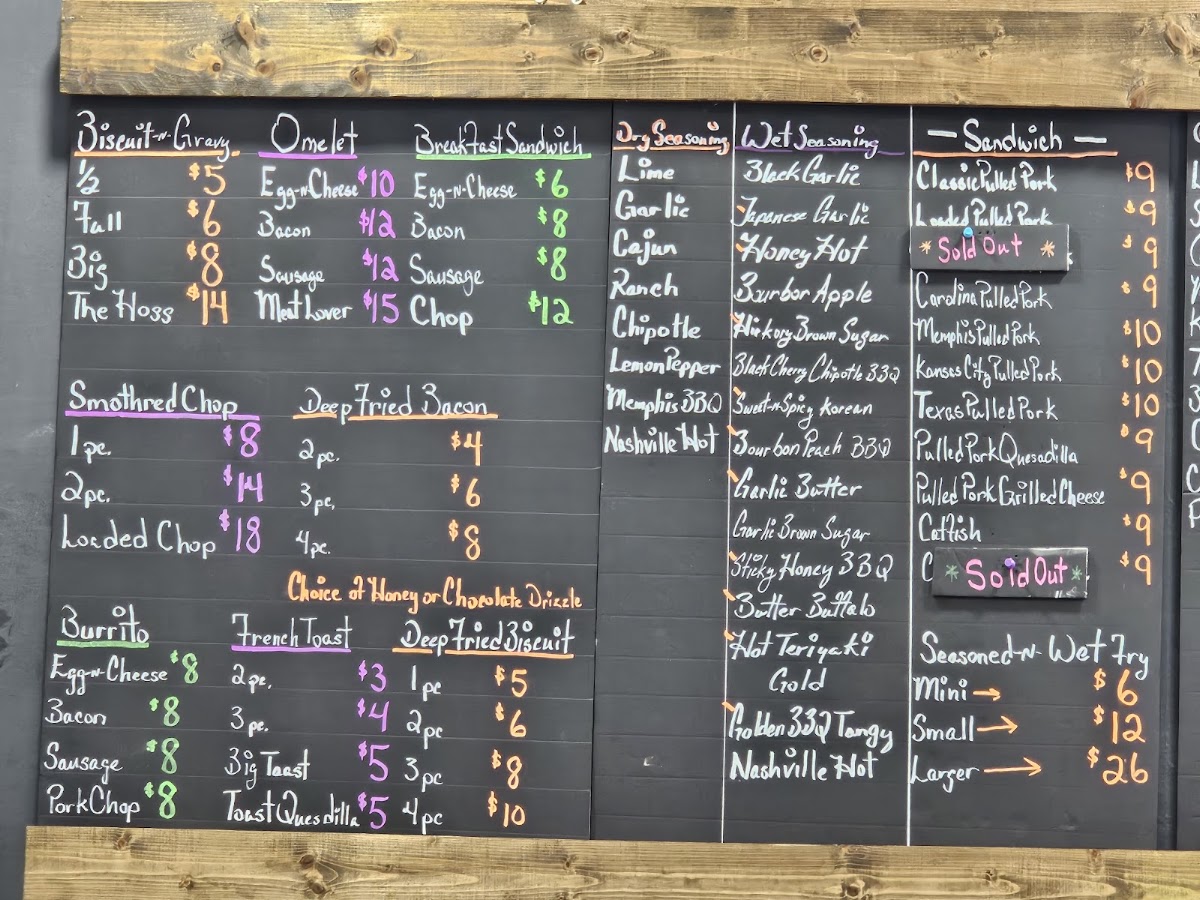 Biscuit-n-Gravy
1/2 $5
Full $6
Big $8
The Hoss $14
Omelet
Egg-n-Cheese $10
Bacon $12
Sausage $12
Meat Lover $15
Breakfast Sandwich
Egg-n-Cheese $6
Bacon $8
Sausage $8
Chop $12
Smothred Chop
1 pc. $8
2 pc. $14
Loaded Chop $18
Deep Fried Bacon
2 pc. $4
3 pc. $6
4 pc. $8
Choice of Honey or Chocolate Drizzle
Burrito
Egg-n-Cheese $8
Bacon $8
Sausage $8
Pork Chop $8
French Toast
2 pc. $3
3 pc. $4
Big Toast $5
Toast Quesdilla $5
Deep Fried Biscuit
1 pc $5
2 pc $6
3 pc $8
4 pc $10
Dry Seasoning
Lime
Garlic
Cajun
Ranch
Chipotle
Lemon Pepper
Memphis BBQ
Nashville Hot
Wet Seasoning
Black Garlic
Japanese Garlic
Honey Hot
Bourbon Apple
Hickory Brown Sugar
Black Cherry Chipotle BBQ
Sweet-n-Spicy Korean
Bourbon Peach BBQ
Garlic Butter
Garlic Brown Sugar
Sticky Honey BBQ
Butter Buffalo
Hot Teriyaki
Gold
Golden BBQ Tangy
Nashville Hot
— Sandwich —
Classic Pulled Pork $9
Loaded Pulled Pork $9
* Sold Out * $9
Carolina Pulled Pork $9
Memphis Pulled Pork $10
Kansas City Pulled Pork $10
Texas Pulled Pork $10
Pulled Pork Quesadilla $9
Pulled Pork Grilled Cheese $9
Catfish $9
C * Sold Out * $9
Seasoned-n-Wet Fry
Mini → $6
Small → $12
Larger → $26